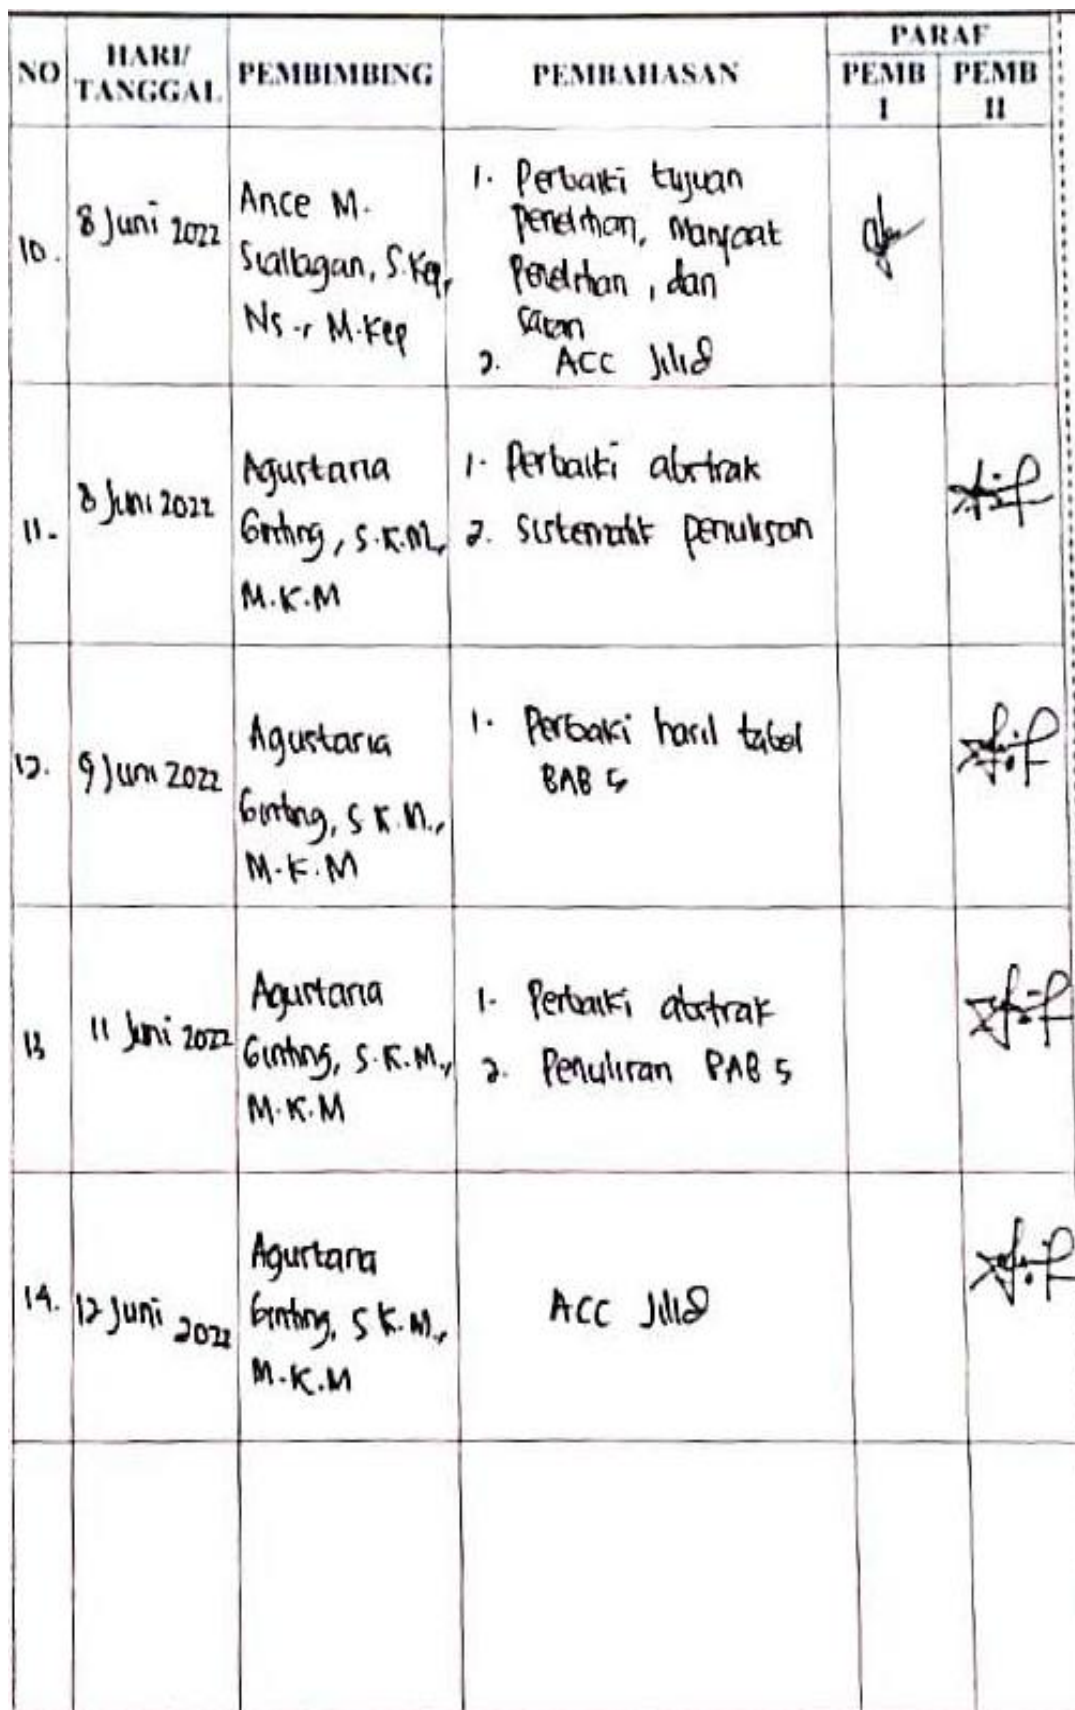 NO HARI/ TANGGAL PEMBIMBING PEMBAHASAN PARAF
PEMB I PEMB II
10. 8 Juni 2022
Ance M.
Siallagan, S.Kep,
Ns., M.Kep
1. Perbaiki tujuan
penelitian, Manfaat
Penelitian, dan
saran
2. ACC Jilid
11. 8 Juni 2022
Agustaria
Ginting, S.K.M,
M.K.M
1. Perbaiki abstrak
2. Sistematik penulisan
12. 9 Juni 2022
Agustaria
Ginting, S.K.M.,
M.K.M
1. Perbaiki hasil tabel
BAB 5
13 11 Juni 2022
Agustaria
Ginting, S.K.M.,
M.K.M
1. Perbaiki abstrak
2. Penulisan BAB 5
14. 12 Juni 2022
Agustaria
Ginting, S.K.M.,
M.K.M
ACC Jilid